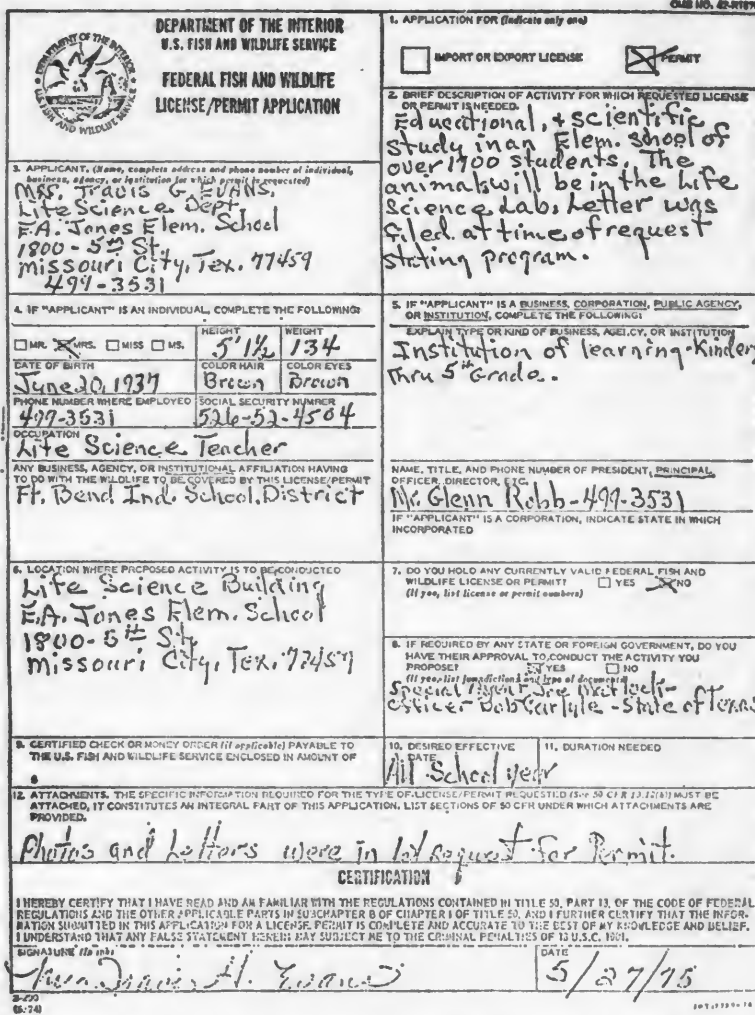 OMB NO. 42-R1670
DEPARTMENT OF THE INTERIOR
U.S. FISH AND WILDLIFE SERVICE
FEDERAL FISH AND WILDLIFE
LICENSE/PERMIT APPLICATION
1. APPLICATION FOR (Indicate only one)
IMPORT OR EXPORT LICENSE
PERMIT
2. BRIEF DESCRIPTION OF ACTIVITY FOR WHICH REQUESTED LICENSE
OR PERMIT IS NEEDED.
Educational, & scientific
study in an Elem. shool of
over 1700 students. The
animals will be in the Life
Science Lab. Letter was
filed at time of request
stating program.
3. APPLICANT. (Name, complete address and phone number of individual,
business, agency, or institution for which permit is requested)
Mrs. Travis G. EVANS,
Life Science Dept.
E.A. Jones Elem. School
1800 - 5th St.
Missouri City, Tex. 77459
499-3531
4. IF "APPLICANT" IS AN INDIVIDUAL, COMPLETE THE FOLLOWING:
MR. MRS. MISS MS.
HEIGHT
5' 1½
WEIGHT
134
DATE OF BIRTH
June 20, 1937
COLOR HAIR
Brown
COLOR EYES
Brown
PHONE NUMBER WHERE EMPLOYED
499-3531
SOCIAL SECURITY NUMBER
526-52-4504
OCCUPATION
Life Science Teacher
ANY BUSINESS, AGENCY, OR INSTITUTIONAL AFFILIATION HAVING
TO DO WITH THE WILDLIFE TO BE COVERED BY THIS LICENSE/PERMIT
Ft. Bend Ind. School District
5. IF "APPLICANT" IS A BUSINESS, CORPORATION, PUBLIC AGENCY,
OR INSTITUTION, COMPLETE THE FOLLOWING:
EXPLAIN TYPE OR KIND OF BUSINESS, AGENCY, OR INSTITUTION
Institution of learning-Kinder
Thru 5th Grade.
NAME, TITLE, AND PHONE NUMBER OF PRESIDENT, PRINCIPAL,
OFFICER, DIRECTOR, ETC.
Mr. Glenn Robb - 499-3531
IF "APPLICANT" IS A CORPORATION, INDICATE STATE IN WHICH
INCORPORATED
6. LOCATION WHERE PROPOSED ACTIVITY IS TO BE CONDUCTED
Life Science Building
E.A. Jones Elem. School
1800-5th St.
Missouri City, Tex. 77459
7. DO YOU HOLD ANY CURRENTLY VALID FEDERAL FISH AND
WILDLIFE LICENSE OR PERMIT? YES NO
(If yes, list license or permit numbers)
8. IF REQUIRED BY ANY STATE OR FOREIGN GOVERNMENT, DO YOU
HAVE THEIR APPROVAL TO CONDUCT THE ACTIVITY YOU
PROPOSE? YES NO
(If yes, list jurisdictions and type of documents)
Special Agent Joe
Officer Bob Carlyle - State of Texas
9. CERTIFIED CHECK OR MONEY ORDER (if applicable) PAYABLE TO
THE U.S. FISH AND WILDLIFE SERVICE ENCLOSED IN AMOUNT OF
$
10. DESIRED EFFECTIVE
DATE
All School year
11. DURATION NEEDED
12. ATTACHMENTS. THE SPECIFIC INFORMATION REQUIRED FOR THE TYPE OF LICENSE/PERMIT REQUESTED (See 50 CFR 13.12(b)) MUST BE
ATTACHED, IT CONSTITUTES AN INTEGRAL PART OF THIS APPLICATION. LIST SECTIONS OF 50 CFR UNDER WHICH ATTACHMENTS ARE
PROVIDED.
Photos and Letters were in 1st Request for Permit.
CERTIFICATION
I HEREBY CERTIFY THAT I HAVE READ AND AM FAMILIAR WITH THE REGULATIONS CONTAINED IN TITLE 50, PART 13, OF THE CODE OF FEDERAL
REGULATIONS AND THE OTHER APPLICABLE PARTS IN SUBCHAPTER B OF CHAPTER I OF TITLE 50, AND I FURTHER CERTIFY THAT THE INFOR-
MATION SUBMITTED IN THIS APPLICATION FOR A LICENSE/PERMIT IS COMPLETE AND ACCURATE TO THE BEST OF MY KNOWLEDGE AND BELIEF.
I UNDERSTAND THAT ANY FALSE STATEMENT HEREIN MAY SUBJECT ME TO THE CRIMINAL PENALTIES OF 18 U.S.C. 1001.
SIGNATURE (In ink)
Mrs. Travis G. Evans
DATE
5/27/75
3-200
(6/74)